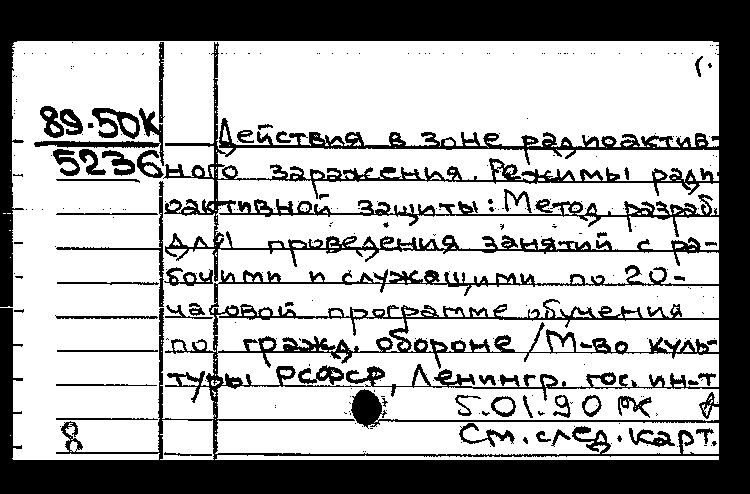 г.
89-50К
5236
Действия в зоне радиоактив-
ного заражения. Режимы ради-
оактивной защиты: Метод. разраб.
для проведения занятий с ра-
бочими и служащими по 20-
часовой программе обучения
по гражд. обороне / М-во куль-
туры РСФСР, Ленингр. гос. ин-т
5.01.90 РК
8 См. след. карт.